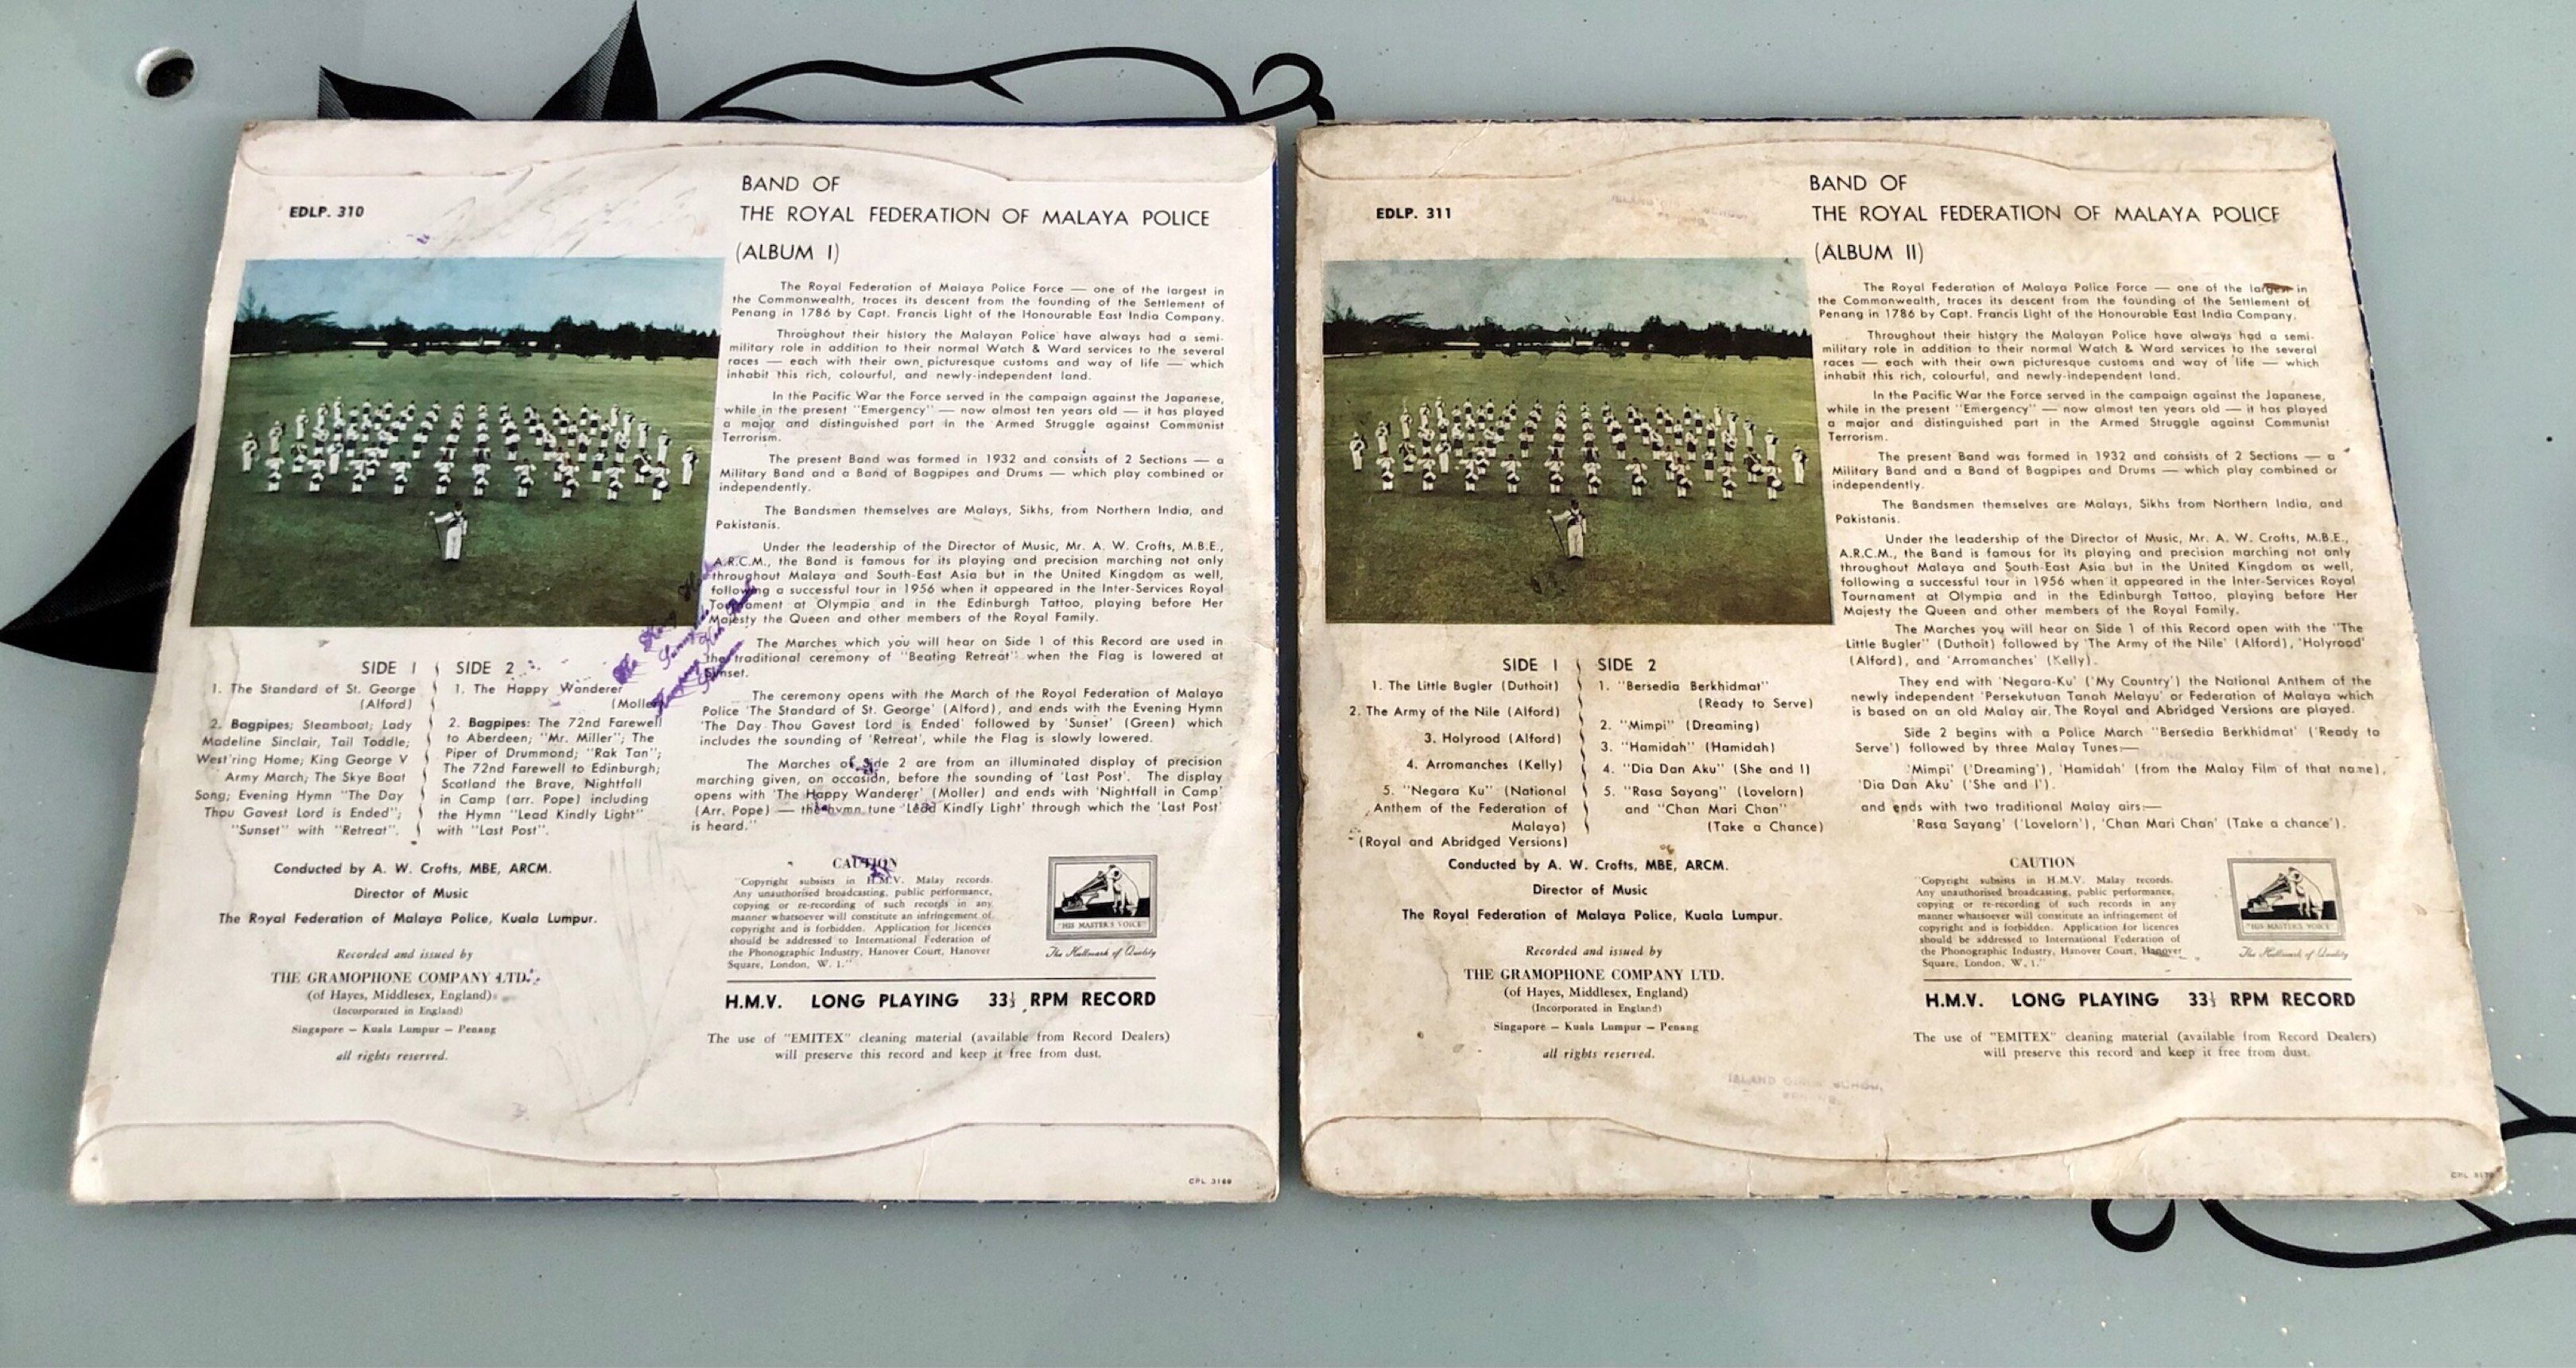 EDLP. 310
BAND OF
THE ROYAL FEDERATION OF MALAYA POLICE
(ALBUM I)
The Royal Federation of Malaya Police Force — one of the largest in
the Commonwealth, traces its descent from the founding of the Settlement of
Penang in 1786 by Capt. Francis Light of the Honourable East India Company.
Throughout their history the Malayan Police have always had a semi-
military role in addition to their normal Watch & Ward services to the several
races — each with their own picturesque customs and way of life — which
inhabit this rich, colourful, and newly-independent land.
In the Pacific War the Force served in the campaign against the Japanese,
while in the present "Emergency" — now almost ten years old — it has played
a major and distinguished part in the Armed Struggle against Communist
Terrorism.
The present Band was formed in 1932 and consists of 2 Sections — a
Military Band and a Band of Bagpipes and Drums — which play combined or
independently.
The Bandsmen themselves are Malays, Sikhs, from Northern India, and
Pakistanis.
Under the leadership of the Director of Music, Mr. A. W. Crofts, M.B.E.,
A.R.C.M., the Band is famous for its playing and precision marching not only
throughout Malaya and South-East Asia but in the United Kingdom as well,
following a successful tour in 1956 when it appeared in the Inter-Services Royal
Tournament at Olympia and in the Edinburgh Tattoo, playing before Her
Majesty the Queen and other members of the Royal Family.
The Marches which you will hear on Side 1 of this Record are used in
the traditional ceremony of "Beating Retreat" when the Flag is lowered at
Sunset.
The ceremony opens with the March of the Royal Federation of Malaya
Police 'The Standard of St. George' (Alford), and ends with the Evening Hymn
'The Day Thou Gavest Lord is Ended' followed by 'Sunset' (Green) which
includes the sounding of 'Retreat', while the Flag is slowly lowered.
The Marches of Side 2 are from an illuminated display of precision
marching given, on occasion, before the sounding of 'Last Post'. The display
opens with 'The Happy Wanderer' (Moller) and ends with 'Nightfall in Camp'
(Arr. Pope) — the hymn tune 'Lead Kindly Light' through which the 'Last Post'
is heard."
SIDE 1
1. The Standard of St. George
(Alford)
2. Bagpipes; Steamboat; Lady
Madeline Sinclair, Tail Toddle;
West'ring Home; King George V
Army March; The Skye Boat
Song; Evening Hymn "The Day
Thou Gavest Lord is Ended";
"Sunset" with "Retreat".
SIDE 2
1. The Happy Wanderer
(Moller)
2. Bagpipes: The 72nd Farewell
to Aberdeen; "Mr. Miller"; The
Piper of Drummond; "Rak Tan";
The 72nd Farewell to Edinburgh;
Scotland the Brave, Nightfall
in Camp (arr. Pope) including
the Hymn "Lead Kindly Light"
with "Last Post".
Conducted by A. W. Crofts, MBE, ARCM.
Director of Music
The Royal Federation of Malaya Police, Kuala Lumpur.
Recorded and issued by
THE GRAMOPHONE COMPANY LTD.
(of Hayes, Middlesex, England)
(Incorporated in England)
Singapore – Kuala Lumpur – Penang
all rights reserved.
CAUTION
"Copyright subsists in H.M.V. Malay records.
Any unauthorised broadcasting, public performance,
copying or re-recording of such records in any
manner whatsoever will constitute an infringement of
copyright and is forbidden. Application for licences
should be addressed to International Federation of
the Phonographic Industry, Hanover Court, Hanover
Square, London, W. 1."
"HIS MASTER'S VOICE"
The Hallmark of Quality
H.M.V. LONG PLAYING 33⅓ RPM RECORD
The use of "EMITEX" cleaning material (available from Record Dealers)
will preserve this record and keep it free from dust.
CPL 3169
EDLP. 311
BAND OF
THE ROYAL FEDERATION OF MALAYA POLICE
(ALBUM II)
The Royal Federation of Malaya Police Force — one of the largest in
the Commonwealth, traces its descent from the founding of the Settlement of
Penang in 1786 by Capt. Francis Light of the Honourable East India Company.
Throughout their history the Malayan Police have always had a semi-
military role in addition to their normal Watch & Ward services to the several
races — each with their own picturesque customs and way of life — which
inhabit this rich, colourful, and newly-independent land.
In the Pacific War the Force served in the campaign against the Japanese,
while in the present "Emergency" — now almost ten years old — it has played
a major and distinguished part in the Armed Struggle against Communist
Terrorism.
The present Band was formed in 1932 and consists of 2 Sections — a
Military Band and a Band of Bagpipes and Drums — which play combined or
independently.
The Bandsmen themselves are Malays, Sikhs from Northern India, and
Pakistanis.
Under the leadership of the Director of Music, Mr. A. W. Crofts, M.B.E.,
A.R.C.M., the Band is famous for its playing and precision marching not only
throughout Malaya and South-East Asia but in the United Kingdom as well,
following a successful tour in 1956 when it appeared in the Inter-Services Royal
Tournament at Olympia and in the Edinburgh Tattoo, playing before Her
Majesty the Queen and other members of the Royal Family.
The Marches you will hear on Side 1 of this Record open with the "The
Little Bugler" (Duthoit) followed by 'The Army of the Nile' (Alford), 'Holyrood'
(Alford), and 'Arromanches' (Kelly).
They end with 'Negara-Ku' ('My Country') the National Anthem of the
newly independent 'Persekutuan Tanah Melayu' or Federation of Malaya which
is based on an old Malay air. The Royal and Abridged Versions are played.
Side 2 begins with a Police March "Bersedia Berkhidmat' ('Ready to
Serve') followed by three Malay Tunes:—
'Mimpi' ('Dreaming'), 'Hamidah' (from the Malay Film of that name),
'Dia Dan Aku' ('She and I').
and ends with two traditional Malay airs:—
'Rasa Sayang' ('Lovelorn'), 'Chan Mari Chan' (Take a chance').
SIDE 1
1. The Little Bugler (Duthoit)
2. The Army of the Nile (Alford)
3. Holyrood (Alford)
4. Arromanches (Kelly)
5. "Negara Ku" (National
Anthem of the Federation of
Malaya)
(Royal and Abridged Versions)
SIDE 2
1. "Bersedia Berkhidmat"
(Ready to Serve)
2. "Mimpi" (Dreaming)
3. "Hamidah" (Hamidah)
4. "Dia Dan Aku" (She and I)
5. "Rasa Sayang" (Lovelorn)
and "Chan Mari Chan"
(Take a Chance)
Conducted by A. W. Crofts, MBE, ARCM.
Director of Music
The Royal Federation of Malaya Police, Kuala Lumpur.
Recorded and issued by
THE GRAMOPHONE COMPANY LTD.
(of Hayes, Middlesex, England)
(Incorporated in England)
Singapore – Kuala Lumpur – Penang
all rights reserved.
CAUTION
"Copyright subsists in H.M.V. Malay records.
Any unauthorised broadcasting, public performance,
copying or re-recording of such records in any
manner whatsoever will constitute an infringement of
copyright and is forbidden. Application for licences
should be addressed to International Federation of
the Phonographic Industry, Hanover Court, Hanover
Square, London, W. 1."
"HIS MASTER'S VOICE"
The Hallmark of Quality
H.M.V. LONG PLAYING 33⅓ RPM RECORD
The use of "EMITEX" cleaning material (available from Record Dealers)
will preserve this record and keep it free from dust.
ISLAND GIRLS' SCHOOL,
CPL